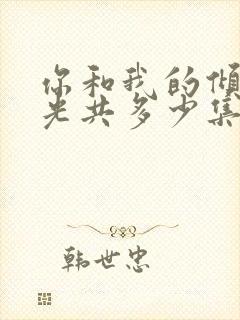 你和我的倾
光共多少集
韩世忠